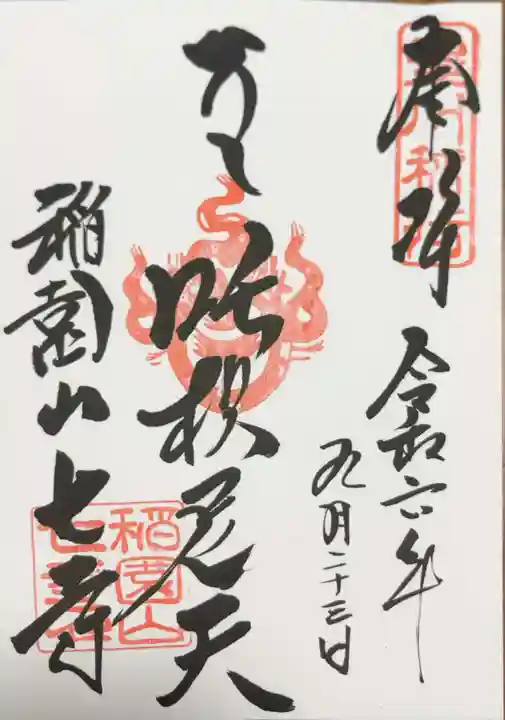 奉拝
令和六年
九月二十三日
吒枳尼天
稲園山七寺
稲園山
七寺